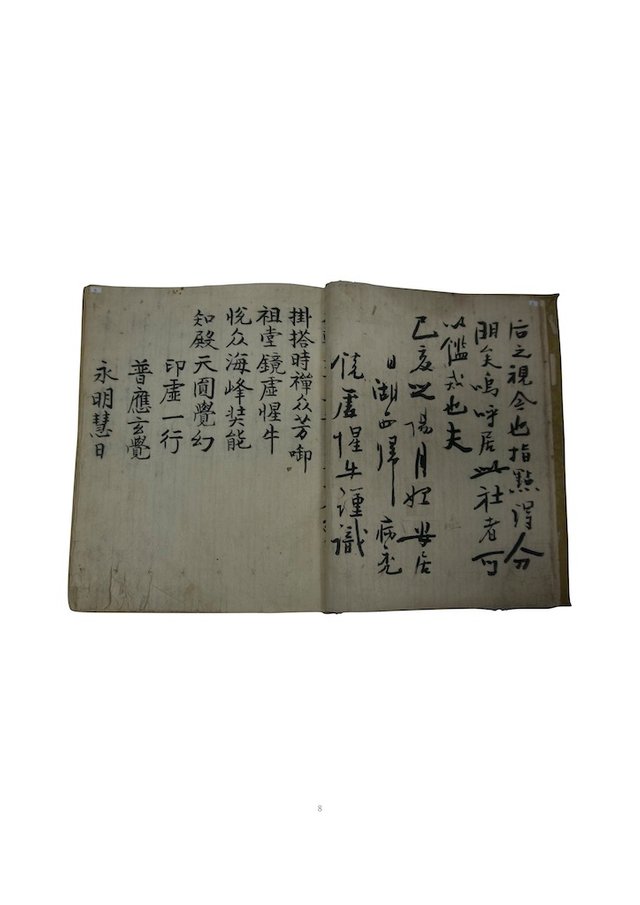 后之視今也指點得分
明矣嗚呼居此社者可
以鑑戒也夫
己亥之陽月結安居
日湖西歸病禿
鏡虛惺牛謹識
掛搭時禪众芳啣
祖堂鏡虛惺牛
悅众海峰奘能
知殿天圓覺幻
印虛一行
普應玄覺
永明慧日
8